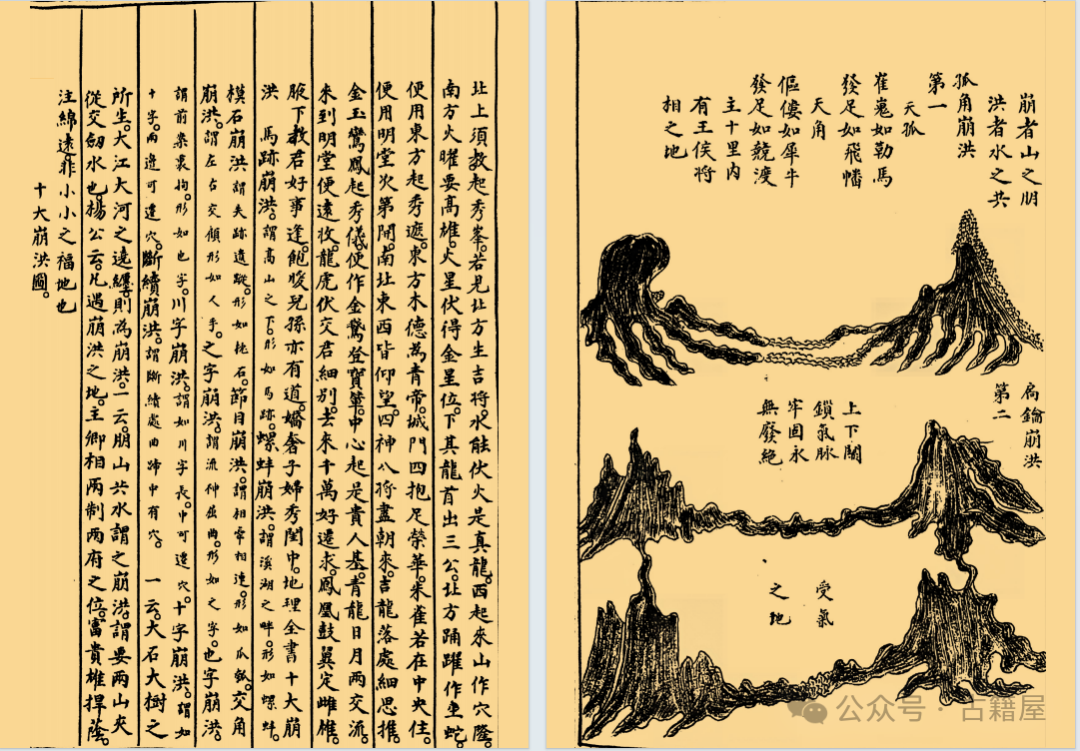 北上須教起秀峯。若見北方生吉將。水能伏火是真龍。西起來山作穴隆。
南方火曜要高雄。火星伏得金星位。下其龍首出三公。北方踊躍作虫蛇。
便用東方起秀遮。東方木德為青帝。城門四抱足榮華。朱雀若在中央住。
便用明堂次第開。南北東西皆仰望。四神八將盡朝來。吉龍落處細思推。
金玉鸞鳳起秀儀。便作金鶯登寶輦。中心起是貴人基。青龍日月兩交流。
來到明堂便遠收。龍虎伏交君細別。去來千萬好還求。鳳凰鼓翼定雌雄。
腋下教君好事逢。飽暖兒孫亦有道。嬌奢子婦秀閨中。地理全書十大崩
洪 馬跡崩洪。謂高山之下。形如馬跡。螺蚌崩洪。謂溪湖之畔。形如螺蚌。
模石崩洪謂失跡遺蹤。形如枕石。節目崩洪。謂相牽相連。形如瓜瓠。交角
崩洪。謂左右交傾形如人手。之字崩洪。謂流伸屈曲。形如之字。也字崩洪。
謂前案裹拘。形如也字。川字崩洪。謂如川字長。中可遷穴。十字崩洪。謂如
十字。兩邊可遷穴。斷續崩洪。謂斷續處曲蹄中有穴。 一云。大石大樹之
所生。大江大河之遶纏。則為崩洪。一云。朋山共水謂之崩洪。謂要兩山夾
從交劒水也。楊公云。凡遇崩洪之地。主卿相兩制兩府之位。富貴雄捍。蔭
注綿遠。非小小之福地也
十大崩洪圖。
崩者山之朋
洪者水之共
孤角崩洪
第一
天孤
崔嵬如勒馬
發足如飛幡
天角
傴僂如犀牛
發足如競渡
主十里内
有王侯將
相之地
扃鑰崩洪
第二
上下關
鎖氣脉
牢固永
無發絕
受氣
之地
公众号·古籍屋